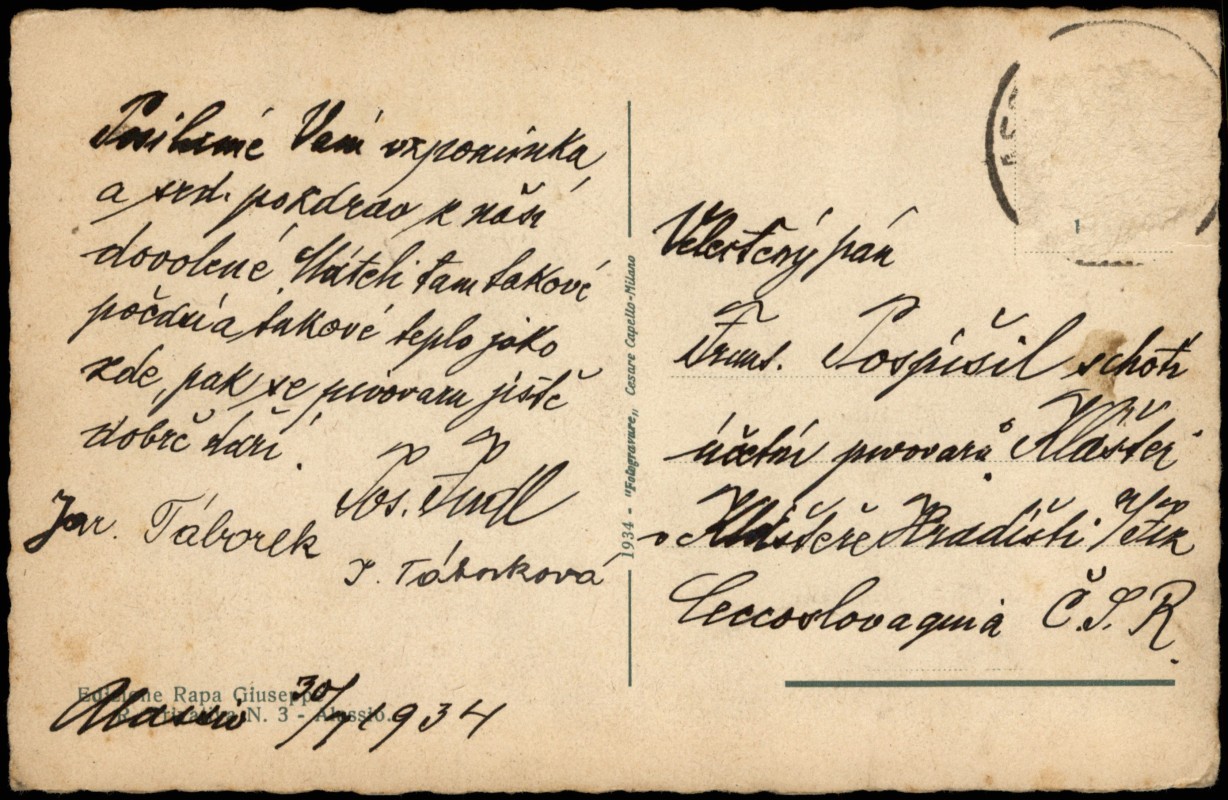 Posíláme Vám vzpomínku
a srd. pozdrav z naší
dovolené. Máteli tam takové
počasí a takové teplo jako
zde, pak se pivovaru jistě
dobře daří.
Jos. Šindl
Jar. Táborek
J. Táborková
Alassio 30/7 1934
Edizione Rapa Giuseppe
N. 3 - Alassio.
1934 - "Fotogravure" Cesare Capello-Milano
Velectěný pán
Frant. Pospíšil choti
účetní pivovarů Klášter
v Klášteře Hradišti n/Jiz
Ceccoslovaquia Č.S.R.